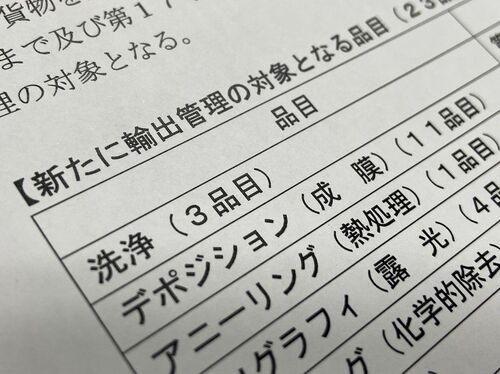 貨物を
まで及び第１７
理の対象となる。
【新たに輸出管理の対象となる品目（２３品目
品目
洗浄（３品目）
デポジション（成　膜）（１１品目）
アニーリング（熱処理）（１品目）
グラフィ（露　光）（４品
グ（化学的除去